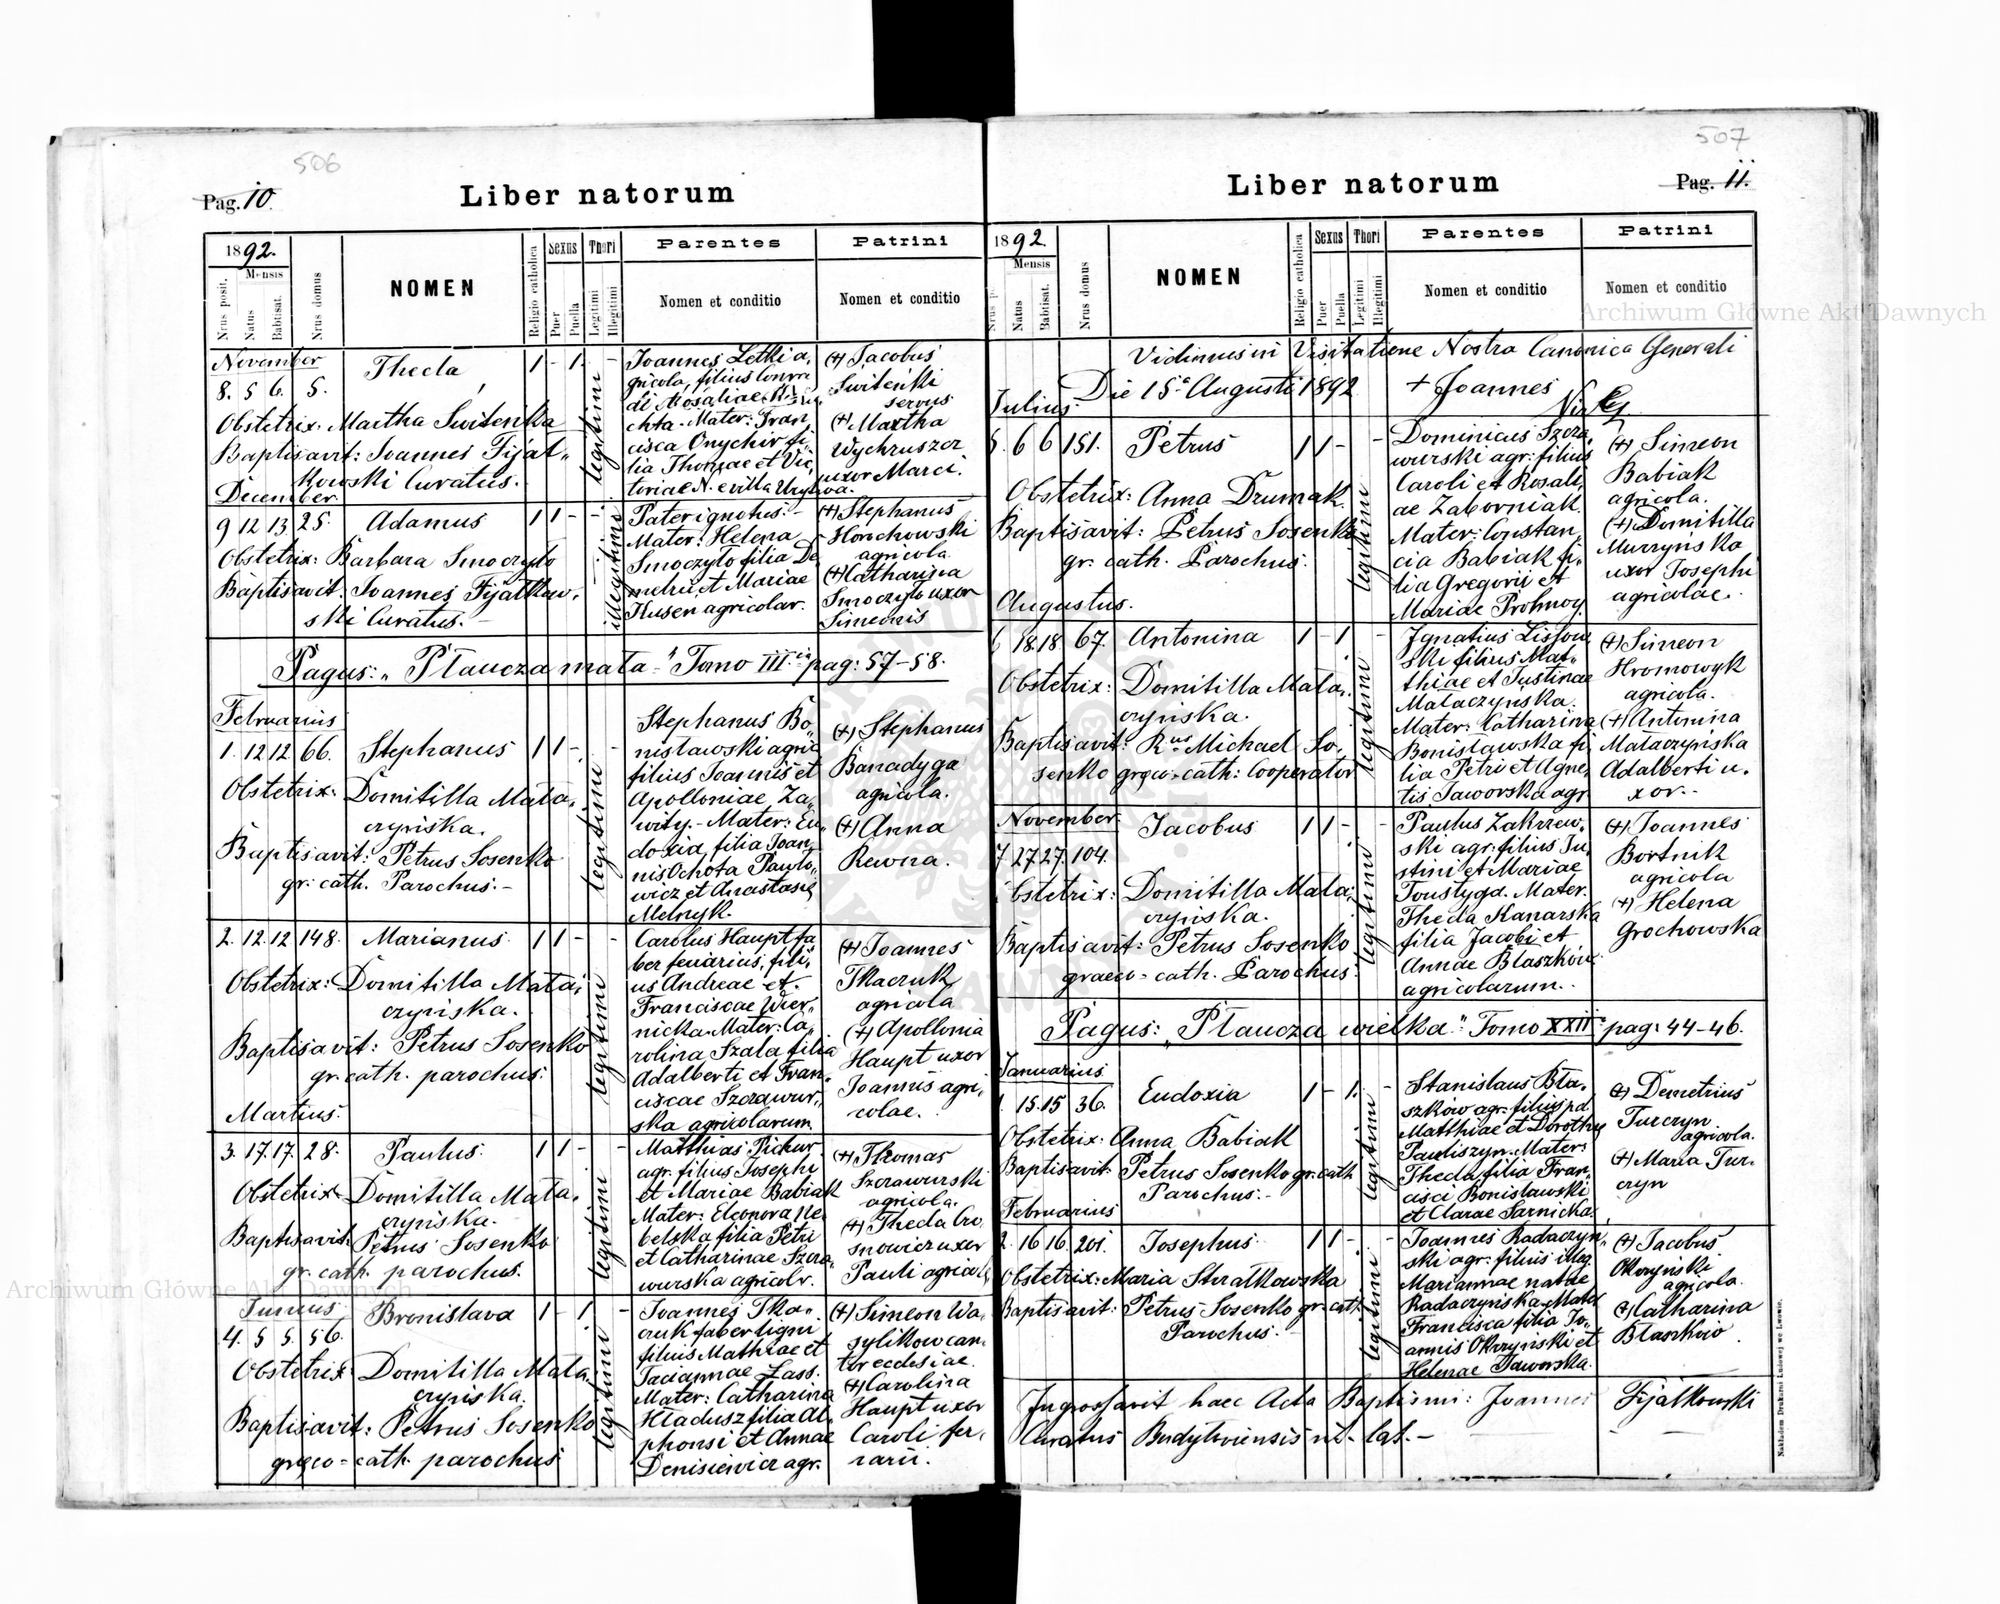 506
Pag. 10.
Liber natorum
1892.
Mensis
Nrus posit.
Natus
Babtisat.
Nrus domus
NOMEN
Religio catholica
Sexus
Puer
Puella
Thori
Legitimi
Illegitimi
Parentes
Nomen et conditio
Patrini
Nomen et conditio
November
8. 5 6. 5. Thecla 1 - 1. -
Obstetrix: Martha Switenka
Baptisavit: Joannes Fijał-
kowski Curatus.
legitimi
Joannes Letki a,
gricola, filius Conra
di Rosaliae
chta - Mater: Fran
cisca Onychir fi,
lia Thomae et Vic,
toriae N. e villa
(+) Jacobus
Switenki
servus
(+) Martha
Wychruszcz
uxor Marci.
December
9 12 13 25. Adamus 1 1 - -
Obstetrix: Barbara Smoczyło
Baptisavit: Joannes Fijałkow,
ski Curatus. -
illegitimi
Pater ignotus: -
Mater: Helena
Smoczyło filia De
metrii et Mariae
Kusen agricolar.
(+) Stephanus
Honchowski
agricola
(+) Catharina
Smoczyło uxor
Simeonis
Pagus: „Płaucza mała" Tomo III in pag: 57-58.
Februarius
1. 12 12 66. Stephanus 1 1 - -
Obstetrix: Domitilla Mata,
czyńska.
Baptisavit: Petrus Sosenko
gr: cath. Parochus. -
legitimi
Stephanus Bo,
nisławski agric
filius Joannis et
Apolloniae Za,
wity. - Mater: Eu,
doxia, filia Joan,
nis Ochota Pawło,
wicz et Anastasi,
Melnyk.
(+) Stephanus
Banadyga
agricola.
(+) Anna
Rewna.
2. 12. 12 148. Marianus 1 1 - -
Obstetrix: Domitilla Mata,
czyńska.
Baptisavit: Petrus Sosenko
gr. cath. parochus.
legitimi
Carolus Haupt fa
ber ferrarius, fili,
us Andreae et
Franciscae Wier,
nicka. Mater: Ca,
rolina Szała filia
Adalberti et Fran,
ciscae Szczawur,
ska agricolarum.
(+) Joannes
Tkaczuk
agricola
(+) Apollonia
Haupt uxor
Joannis agri,
colae.
Martius.
3. 17. 17. 28. Paulus. 1 1 - -
Obstetrix Domitilla Mata,
czyńska.
Baptisavit Petrus Sosenko
gr. cath. parochus.
legitimi
Matthias Pickur
agr. filius Josephi
et Mariae Babiak
Mater: Eleonora Ne
belska filia Petri
et Catharinae Szcza,
wurska agricolr.
(+) Thomas
Szczawurski
agricola.
(+) Thecla Cro,
snowicz uxor
Pauli agricol
Junius
4. 5 5. 56. Bronislava 1 - 1. -
Obstetrix: Domitilla Mata,
czyńska.
Baptisavit: Petrus Sosenko
graeco = cath. parochus
legitimi
Joannes Tka,
czuk faber ligni
filius Mathiae et
Taciannae Zass.
Mater: Catharina
Hładusz filia Al,
phonsi et Annae
Denisiewicz agr.
(+) Simeon Wa,
sylikow can,
tor ecclesiae.
(+) Carolina
Haupt uxor
Caroli fer,
rarii.
507
Liber natorum
Pag. 11.
1892.
Mensis
Natus
Babtisat.
Nrus domus
NOMEN
Religio catholica
Sexus
Puer
Puella
Thori
Legitimi
Illegitimi
Parentes
Nomen et conditio
Patrini
Nomen et conditio
Vidimus in Visitatione Nostra Canonica Generali
Die 15a Augusti 1892 + Joannes
Julius
5. 6 6 151. Petrus 1 1 - -
Obstetrix: Anna Drumak.
Baptisavit: Petrus Sosenko
gr. cath. Parochus.
legitimi
Dominicus Szcza,
wurski agr: filius
Caroli et Rosali,
ae Zaborniak.
Mater: Constan,
cia Babiak fi,
lia Gregorii et
Mariae Prohnoy.
(+) Simeon
Babiak
agricola.
(+) Domitilla
Murzyńska
uxor Josephi
agricolae.
Augustus.
6 18. 18 67. Antonina 1 - 1 -
Obstetrix: Domitilla Mata,
czyńska.
Baptisavit: Rus Michael So,
senko graeco-cath: Cooperator
legitimi
Ignatius Lisow,
ski filius Mat,
thiae et Justinae
Mataczyńska.
Mater: Catharina
Bonisławska fi,
lia Petri et Agne,
tis Jaworska agr
(+) Simeon
Hromowyk
agricola.
(+) Antonina
Mataczyńska
Adalberti u,
xor. -
November
7. 27 27. 104. Jacobus 1 1 - -
Obstetrix: Domitilla Mata,
czyńska.
Baptisavit: Petrus Sosenko
graeco-cath. Parochus.
legitimi
Paulus Zakrzew,
ski agr: filius Ju,
stini et Mariae
Toustyga. Mater.
Thecla Kanarska
filia Jacobi et
Annae Błaszków
agricolarum.
(+) Joannes
Bortnik
agricola
(+) Helena
Grochowska
Pagus: „Płaucza wielka" Tomo XXII pag: 44-46.
Januarius
1. 15. 15 36. Eudoxia 1 - 1. -
Obstetrix: Anna Babiak
Baptisavit Petrus Sosenko gr. cath
Parochus. -
legitimi
Stanislaus Bła,
szków agr. filius pd
Matthiae et Dorothy
Pauliszyn. Mater:
Thecla, filia Fran,
cisci Bonisławski
et Clarae Sarnicka.
(+) Demetrius
Turczyn
agricola.
(+) Maria Tur,
czyn
Februarius
2. 16 16. 201. Josephus 1 1 - -
Obstetrix: Maria Strałkowska
Baptisavit: Petrus Sosenko gr. cath.
Parochus. -
legitimi
Joannes Radaczyń,
ski agr. filius illeg.
Mariannae natae
Radaczyńska. Mater
Francisca filia Jo,
annis Okrzyński et
Helenae Jaworska.
(+) Jacobus
Okrzyński
agricola.
(+) Catharina
Błaszków.
Ingrossavit haec Acta Baptismi: Joannes Fijałkowski
Curatus Budyłoviensis rit. lat. -
Nakładem Drukarni Ludowej we Lwowie.
Archiwum Główne Akt Dawnych
Archiwum Główne Akt Dawnych